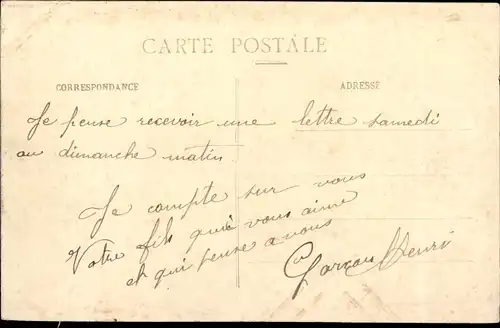 CARTE POSTALE
CORRESPONDANCE
ADRESSE
Je pense recevoir une lettre samedi
ou dimanche matin
Je compte sur vous
Votre fils qui vous aime
et qui pense a vous
Garçon Henri